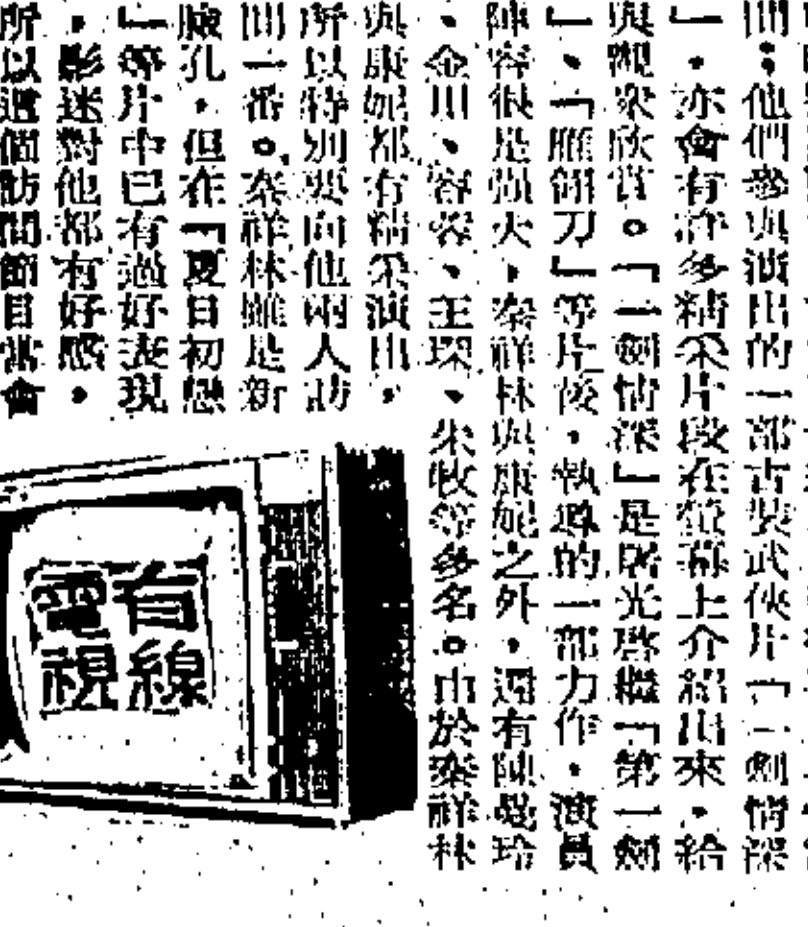 間：他們參與演出的一部古裝武俠片「一劍情深
」，亦會有許多精采片段在螢幕上介紹出來，給
與觀眾欣賞。「一劍情深」是屠光啓繼「第一劍
」、「雁翎刀」等片後，執導的一部力作，演員
陣容很是強大，秦祥林與康妮之外，還有陳曼玲
、金川、容蓉、王琛、朱牧等多名。由於秦祥林
與康妮都有精采演出，
所以特別要向他兩人訪
問一番。秦祥林雖是新
臉孔，但在「夏日初戀
」等片中已有過好表現
，影迷對他都有好感，
所以這個訪問節目當會
有線
電視